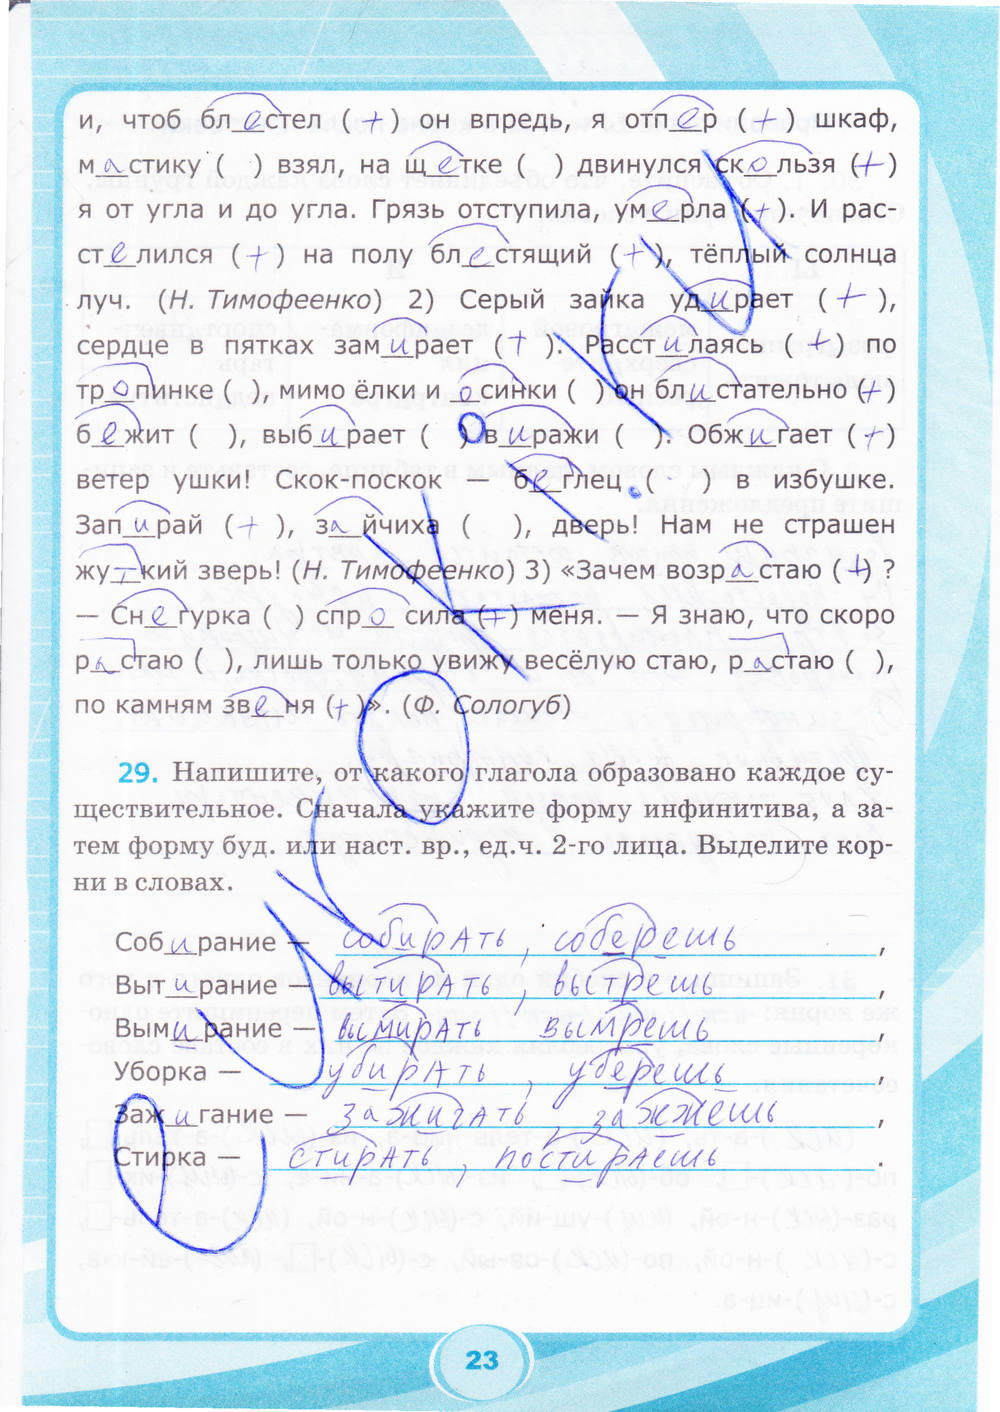 и, чтоб бл_е_стел ( + ) он впредь, я отп_е_р ( + ) шкаф,
м_а_стику ( ) взял, на щ_е_тке ( ) двинулся ск_о_льзя ( + )
я от угла и до угла. Грязь отступила, ум_е_рла ( + ). И рас-
ст_е_лился ( + ) на полу бл_е_стящий ( + ), тёплый солнца
луч. (Н. Тимофеенко) 2) Серый зайка уд_и_рает ( + ),
сердце в пятках зам_и_рает ( + ). Расст_и_лаясь ( + ) по
тр_о_пинке ( ), мимо ёлки и _о_синки ( ) он бл_и_стательно ( + )
б_е_жит ( ), выб_и_рает ( ) в_и_ражи ( ). Обж_и_гает ( + )
ветер ушки! Скок-поскок — б_е_глец ( ) в избушке.
Зап_и_рай ( + ), з_а_йчиха ( ), дверь! Нам не страшен
жу_т_кий зверь! (Н. Тимофеенко) 3) «Зачем возр_а_стаю ( + ) ?
— Сн_е_гурка ( ) спр_о_сила ( + ) меня. — Я знаю, что скоро
р_а_стаю ( ), лишь только увижу весёлую стаю, р_а_стаю ( ),
по камням зв_е_ня ( + )». (Ф. Сологуб)
29. Напишите, от какого глагола образовано каждое су-
ществительное. Сначала укажите форму инфинитива, а за-
тем форму буд. или наст. вр., ед.ч. 2-го лица. Выделите кор-
ни в словах.
Соб_и_рание — собирать, соберешь ,
Выт_и_рание — вытирать, вытрешь ,
Вым_и_рание — вымирать вымрешь ,
Уборка — убирать, уберешь ,
Заж_и_гание — зажигать, зажжешь ,
Стирка — стирать, постираешь .
23